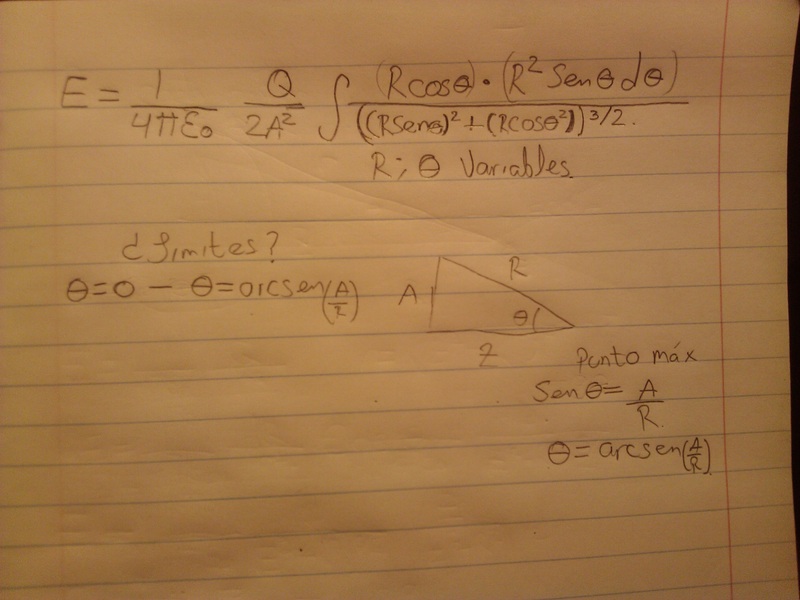 E = 1/(4πε₀) Q/(2A²) ∫ (Rcosθ)·(R² Senθdθ)/((RSenθ)²+(Rcosθ²))^3/2.
R; θ Variables
¿Limites?
θ=0 — θ=arcsen(A/R)
R
A
θ
Z
Punto máx
Senθ= A/R
θ=arcsen(A/R)